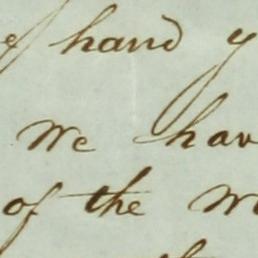 hand
We hav
of the